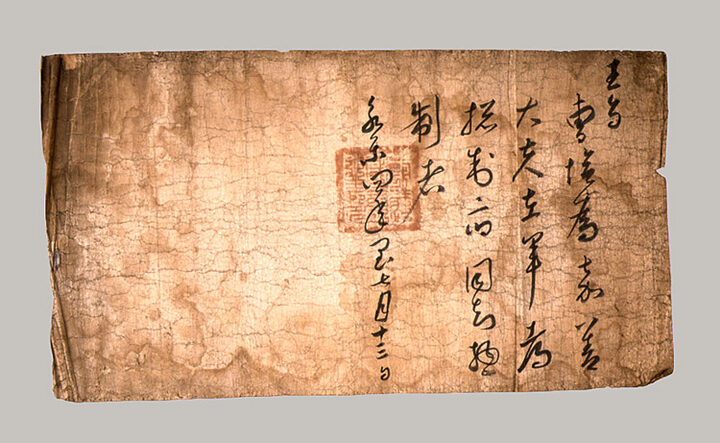 王旨
曺恰爲嘉善
大夫左軍都
摠制府同知摠
制者
永樂四年閏七月十三日